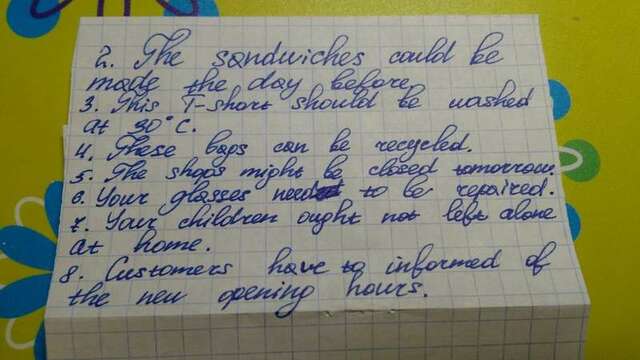 2. The sandwiches could be
made the day before
3. This T-short should be washed
at 30°C.
4. These bags can be recycled.
5. The shops might be closed tomorrow.
6. Your glasses need to be repaired.
7. Your children ought not left alone
at home.
8. Customers have to informed of
the new opening hours.